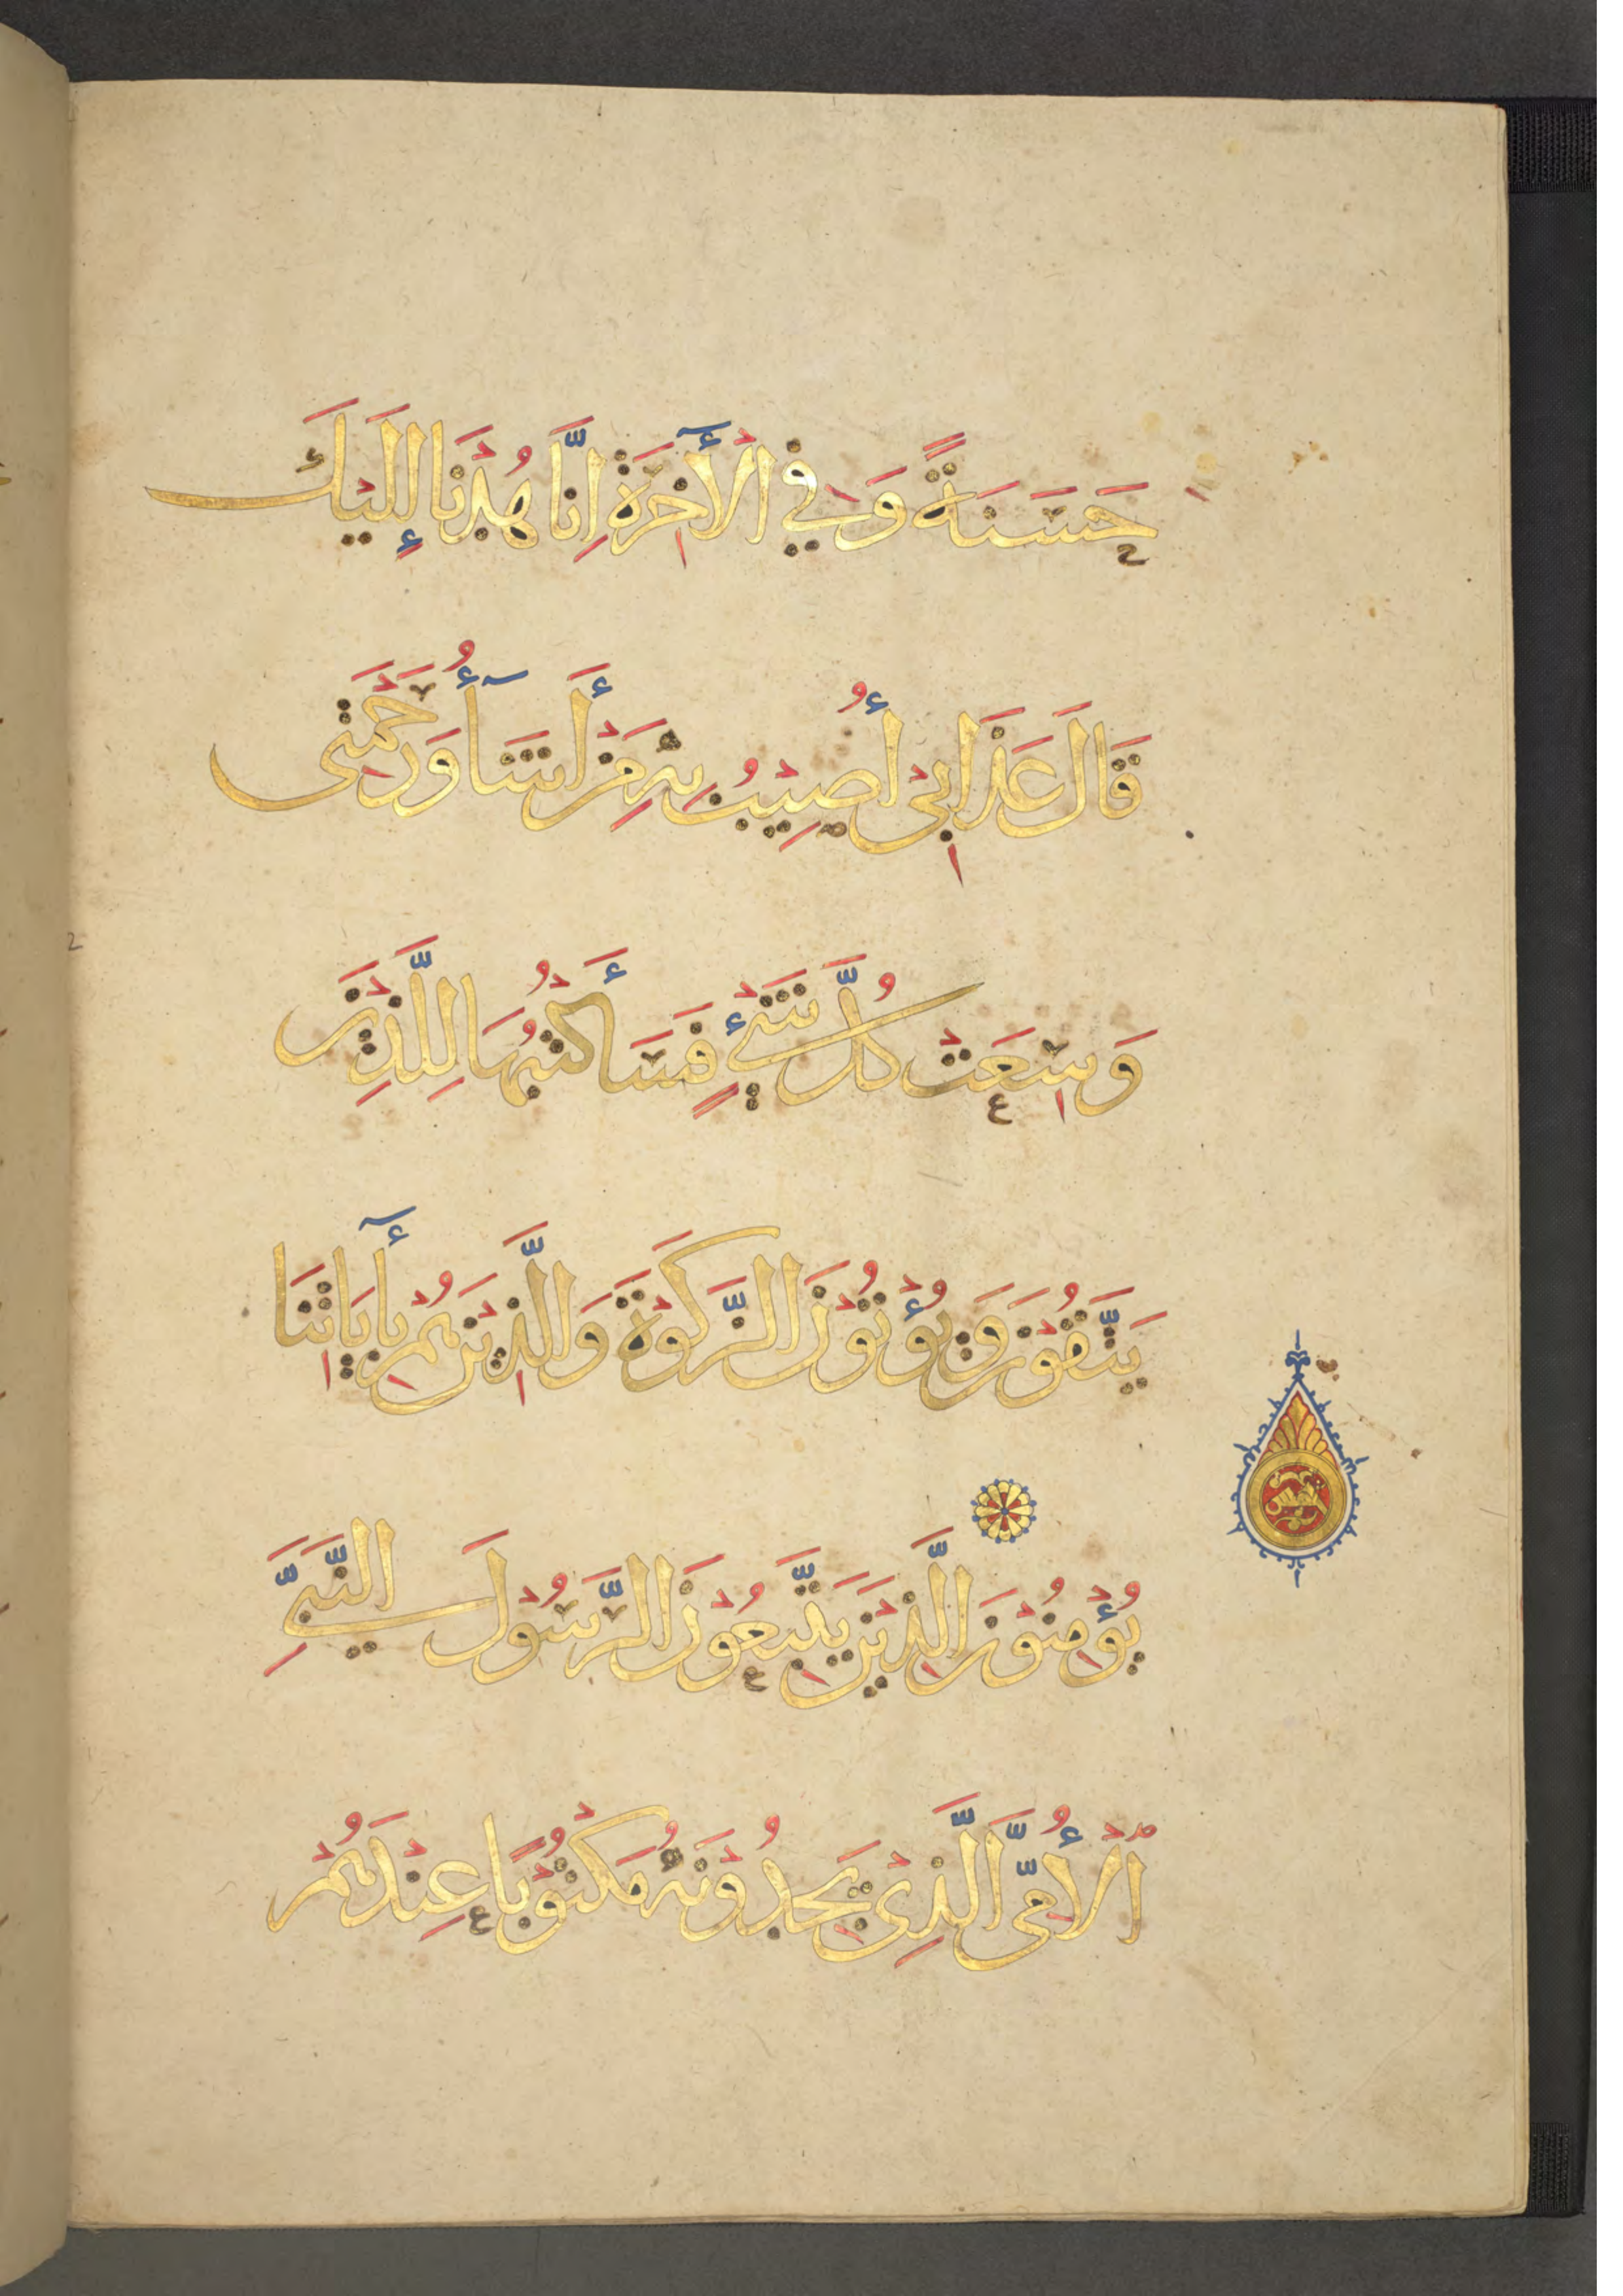 حَسَنَةً وَفِي الْأٓخِرَةِ إِنَّا هُدْنَا إِلَيْكَ
قَالَ عَذَابِيْ أُصِيْبُ بِهِ مَنْ أَشَآءُ وَرَحْمَتِى
وَسِعَتْ كُلَّ شَيْءٍ فَسَأَكْتُبُهَا لِلَّذِيْنَ
يَتَّقُوْنَ وَيُؤْتُوْنَ الزَّكَوةَ وَالَّذِيْنَ هُمْ بِأٓيَاتِنَا
يُؤْمِنُوْنَ الَّذِيْنَ يَتَّبِعُوْنَ الرَّسُوْلَ النَّبِيَّ
الْأُمِّيَّ الَّذِى يَجِدُوْنَهُ مَكْتُوْبًا عِنْدَهُمْ